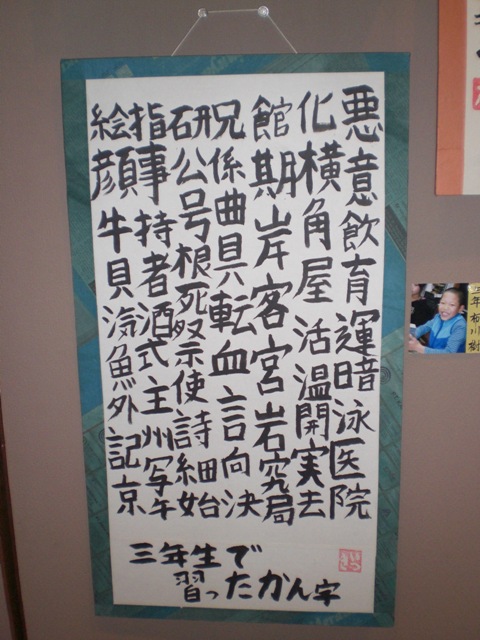 悪意飲育運暗泳医院
化横角屋活温開実去
館期岸客宮岩究局
兄係曲具転血言向決
研公号根死祭使詩細始
指事持者酒式主州写
絵顔牛貝汽魚外記京
三年生で
習ったかん字